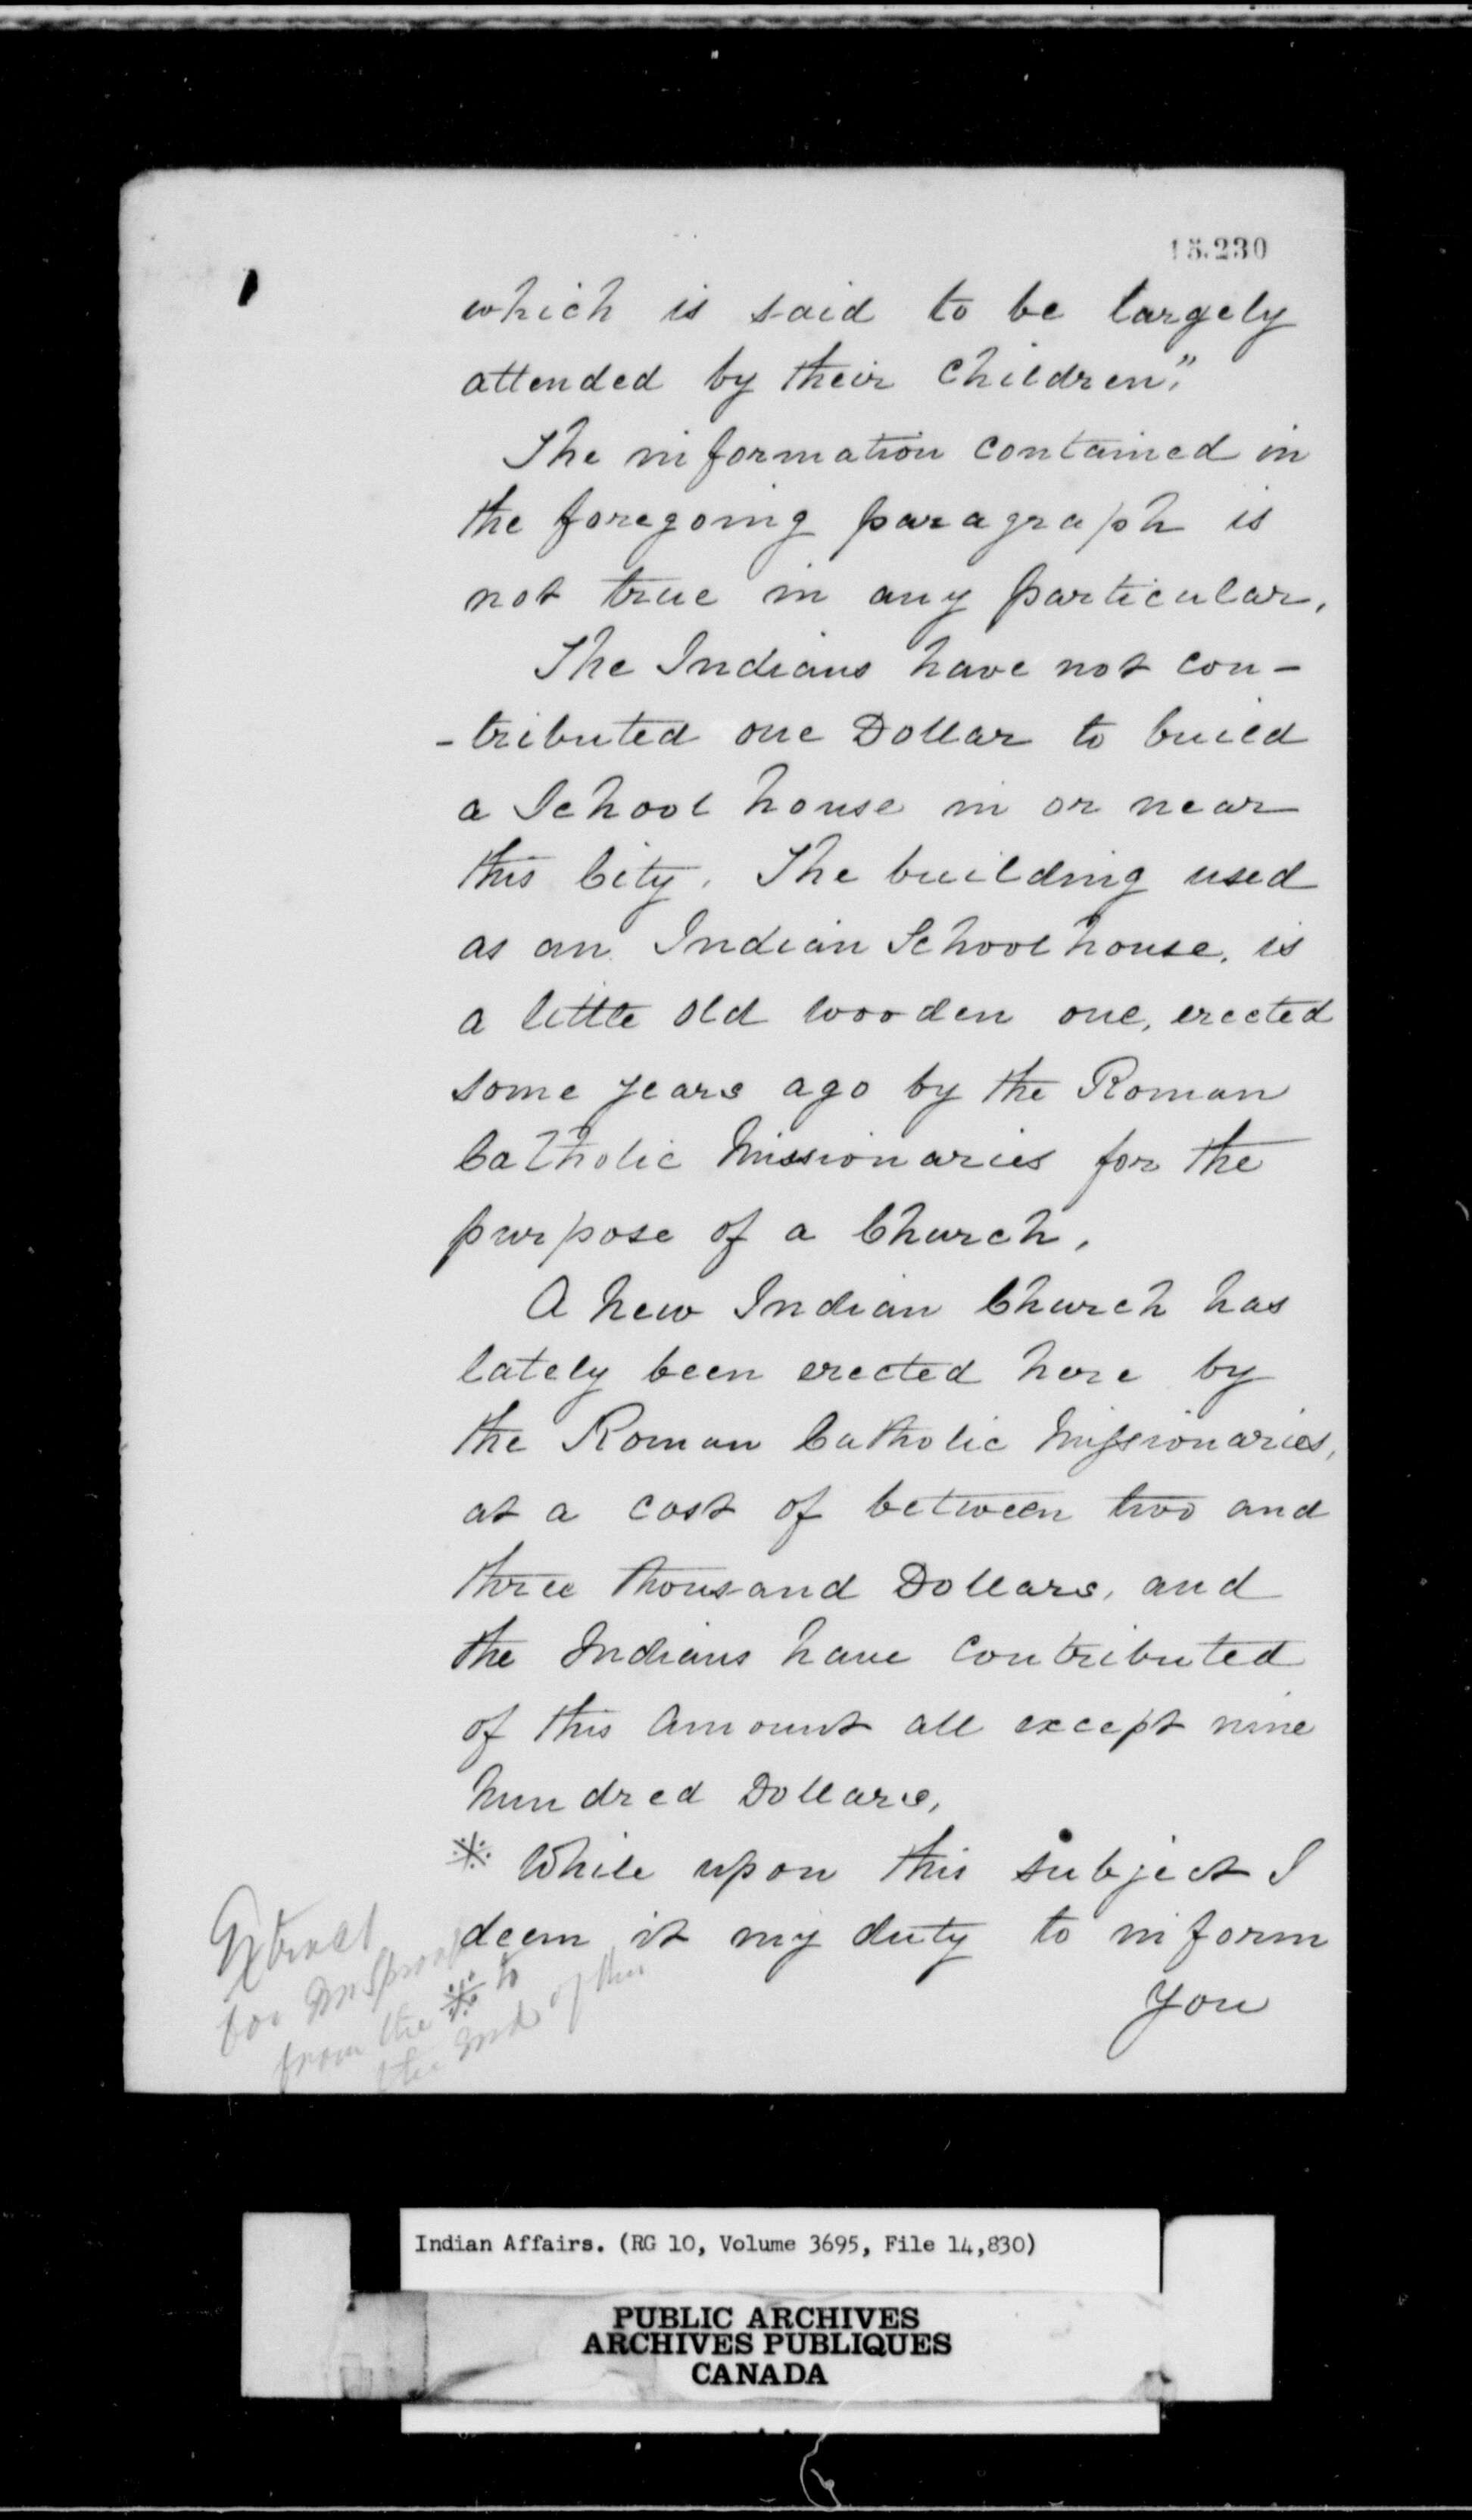 15.230
which is said to be largely
attended by their Children."
The information contained in
the foregoing paragraph is
not true in any particular.
The Indians have not con-
-tributed one Dollar to build
a School house in or near
this City. The building used
as an Indian Schoolhouse, is
a little old wooden one, erected
some years ago by the Roman
Catholic Missionaries for the
purpose of a Church.
A new Indian Church has
lately been erected here by
the Roman Catholic Missionaries,
at a cost of between two and
three thousand Dollars, and
the Indians have contributed
of this amount all except nine
hundred Dollars.
※ While upon this subject I
deem it my duty to inform
you
Extract
for Mr Sproat
from the ※ to
the end of this
Indian Affairs. (RG 10, Volume 3695, File 14,830)
PUBLIC ARCHIVES
ARCHIVES PUBLIQUES
CANADA